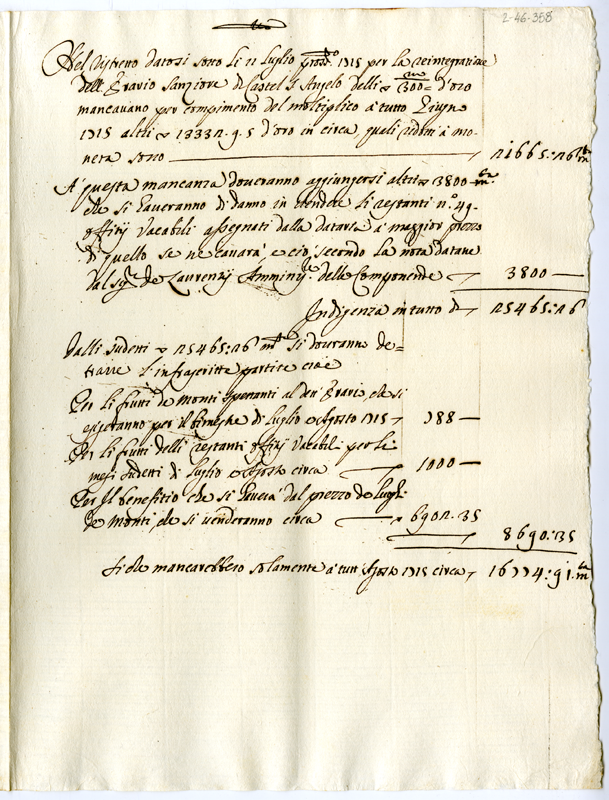 2-46-358
Nel Ristretto datosi sotto li 11 Luglio pross.º 1715 per la reintegrazione
dell'Erario Sanziore di Castel S. Angelo delli ▽ 300 d'oro
mancavano per compimento del moltiplico à tutto Giugno
1715 altri ▽ 13332.9.5 d'oro in circa, quali ridotti à mo-
neta sono 21665:26 m.ta
A' questa mancanza doveranno aggiungersi altri ▽ 3800 m.ta
che si haveranno di danno in vendere li restanti n.º 49
offitij Vacabili assegnati dalla Dataria à maggior prezzo
di quello se ne cavarà, e ciò secondo la nota datane
dal Sig.r de Laurentij Amminij.re delle Componende 3800
Indigenza in tutto ▽ 25465:26
Dalli sudetti ▽ 25465:26 m.ta si dovranno de=
trarre l'infrascritte partite cioè
Per li frutti de Monti spettanti al den.º Erario, che si
esigeranno per il bimestre di Luglio e Agosto 1715 788
Per li frutti delli restanti offitij Vacabili per li
mesi sudetti di Luglio e Agosto circa 1000
Per il benefitio che si haverà dal prezzo de Luoghi
de Monti, che si venderanno circa 6902.35
8690:35
Si che mancarebbero solamente à tutt'Agosto 1715 circa 16774:91 m.ta